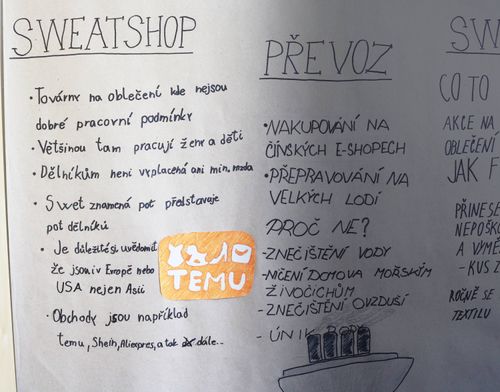 SWEATSHOP
· Továrny na oblečení kde nejsou
dobré pracovní podmínky
· Většinou tam pracují ženy a děti
· Dělníkům není vyplacená ani min. mzda
· Swet znamená pot představuje
pot dělníků
· Je důležité si uvědomit
že jsou i v Evropě nebo
USA nejen Asii
· Obchody jsou například
temu, Shein, Aliexpres, a tak dále..
TEMU
PŘEVOZ
· NAKUPOVÁNÍ NA
ČÍNSKÝCH E-SHOPECH
· PŘEPRAVOVÁNÍ NA
VELKÝCH LODÍ
PROČ NE?
- ZNEČIŠTĚNÍ VODY
- NIČENÍ DOMOVA MOŘSKÝM
ŽIVOČICHŮM
- ZNEČIŠTĚNÍ OVZDUŠÍ
- ÚNIK ROPY
SW
CO TO
AKCE NA
OBLEČENÍ
JAK F
PŘINESE
NEPOŠK
A VYMĚ
- KUS Z
ROČNĚ SE
TEXTILU